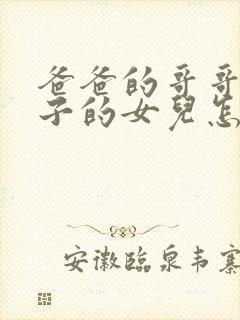 爸爸的哥哥
子的女兒怎
安徽臨泉韦寨